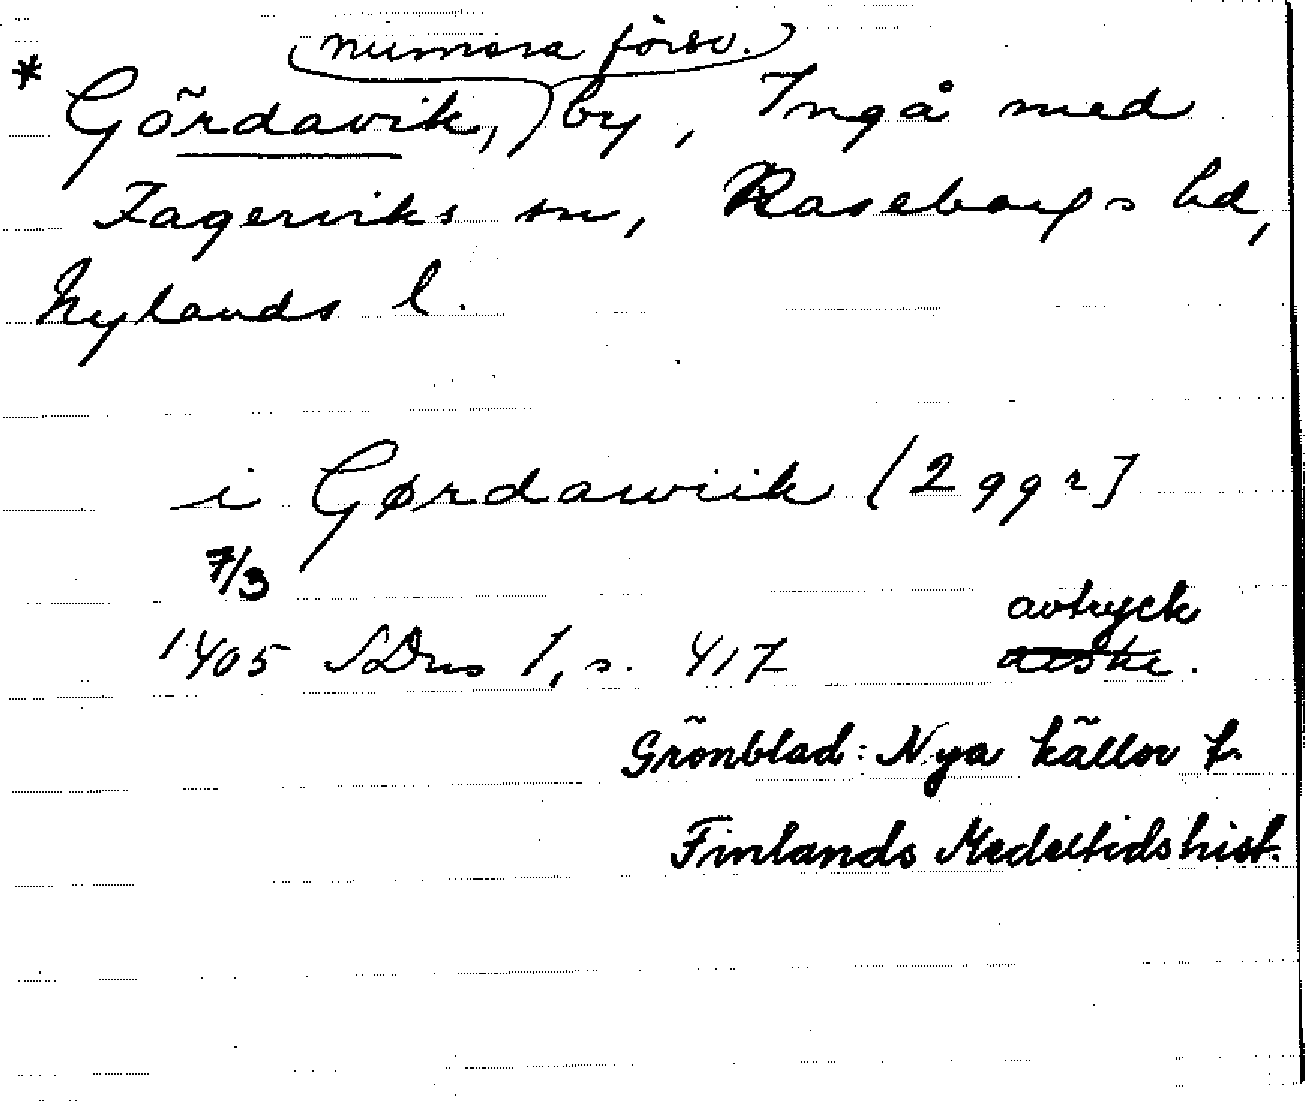 (numera försv.)
* Gördavik, by, Ingå med
Fagerviks sn, Raseborgs hd,
Nylands l.
i Gørdawiik [2 ggr]
7/3
avtryck
1405 SDns 1, s. 417 avskr.
Grönblad: Nya källor t.
Finlands Medeltidshist.